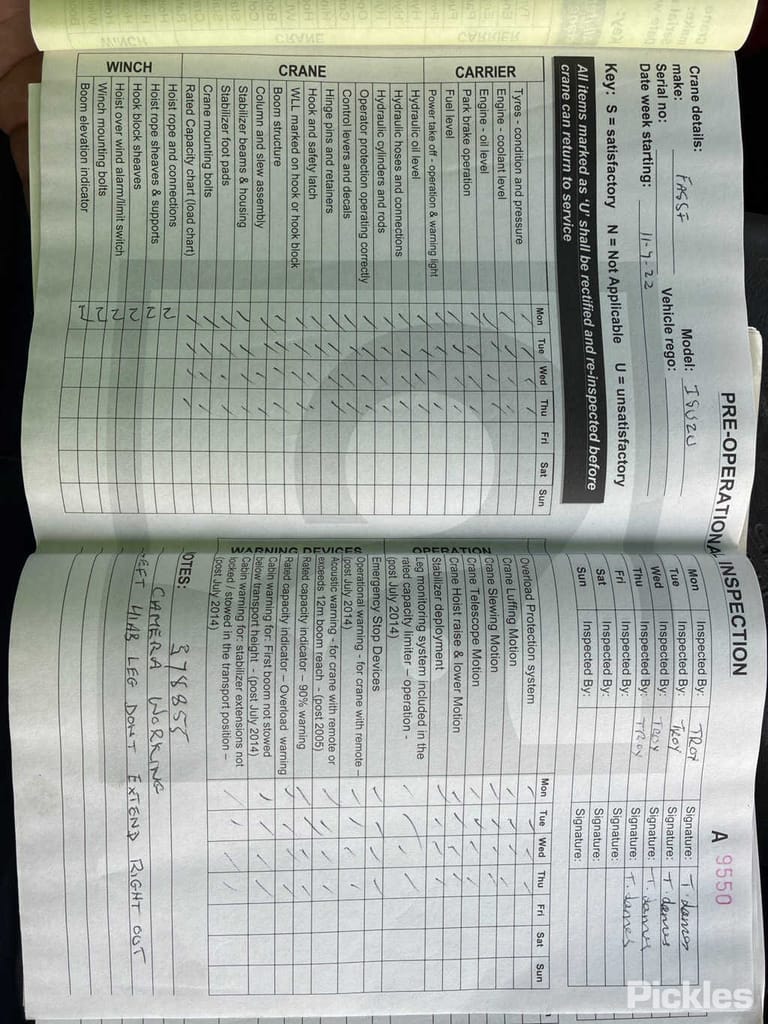 PRE-OPERATIONAL INSPECTION
A 9550
Crane details:
make: FASSI Model: ISUZU
Serial no: Vehicle rego:
Date week starting: 11-7-22
Key: S = satisfactory N = Not Applicable U = unsatisfactory
All items marked as 'U' shall be rectified and re-inspected before
crane can return to service
Mon Tue Wed Thu Fri Sat Sun
CARRIER
Tyres - condition and pressure
Engine - coolant level
Engine - oil level
Park brake operation
Fuel level
Power take off - operation & warning light
CRANE
Hydraulic oil level
Hydraulic hoses and connections
Hydraulic cylinders and rods
Operator protection operating correctly
Control levers and decals
Hinge pins and retainers
Hook and safety latch
WLL marked on hook or hook block
Boom structure
Column and slew assembly
Stabilizer beams & housing
Stabilizer foot pads
Crane mounting bolts
Rated Capacity chart (load chart)
WINCH
Hoist rope and connections N
Hoist rope sheaves & supports N
Hook block sheaves N
Hoist over wind alarm/limit switch N
Winch mounting bolts N
Boom elevation indicator N
Mon Inspected By: TROY Signature: T. James
Tue Inspected By: TROY Signature: T. James
Wed Inspected By: TROY Signature: T. James
Thu Inspected By: TROY Signature: T. James
Fri Inspected By: Signature:
Sat Inspected By: Signature:
Sun Inspected By: Signature:
Mon Tue Wed Thu Fri Sat Sun
OPERATION
Overload Protection system
Crane Luffing Motion
Crane Slewing Motion
Crane Telescope Motion
Crane Hoist raise & lower Motion
Stabilizer deployment
Leg monitoring system included in the
rated capacity limiter – operation -
(post July 2014)
WARNING DEVICES
Emergency Stop Devices
Operational warning - for crane with remote –
(post July 2014)
Acoustic warning - for crane with remote or
exceeds 12m boom reach - (post 2005)
Rated capacity indicator – 90% warning
Rated capacity indicator – Overload warning
Cabin warning for: First boom not stowed
below transport height - (post July 2014)
Cabin warning for: stabilizer extensions not
locked / stowed in the transport position –
(post July 2014)
OTES: 378855
CAMERA WORKING
LEFT HIAB LEG DONT EXTEND RIGHT OUT
Pickles